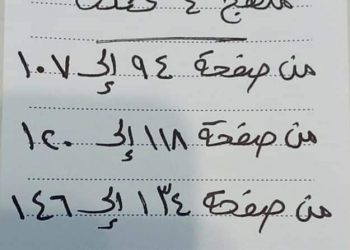 منهج ٤
من صفحة ٩٤ إلى ١٠٧
من صفحة ١١٨ إلى ١٢٠
من صفحة ١٣٤ إلى ١٤٦